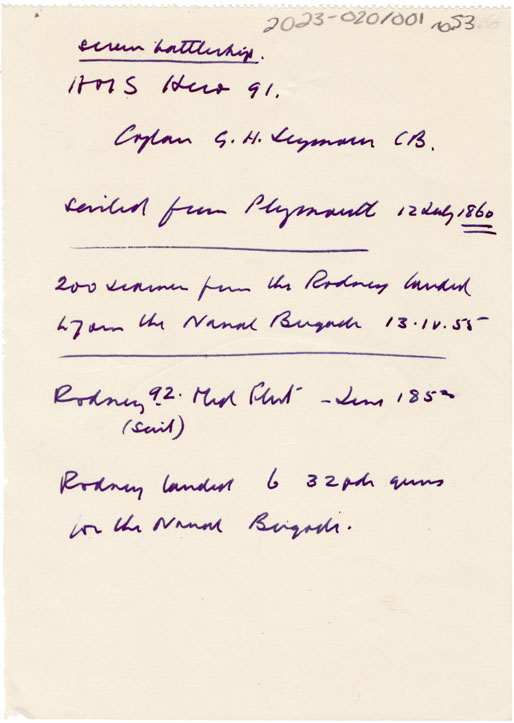 2023-020/001 no53
screw battleship.
HMS Hero 91.
Captain G. H. Seymour CB.
sailed from Plymouth 12 July 1860
200 seamen from the Rodney landed
to join the Naval Brigade 13.IV.55
Rodney 92. Med Fleet
(sail)
Rodney landed 6 32pdr guns
for the Naval Brigade.